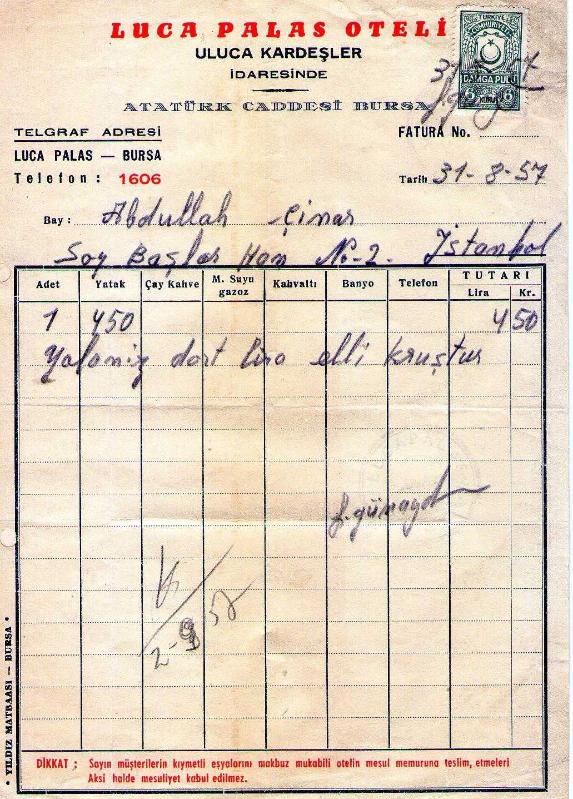 LUCA PALAS OTELİ
ULUCA KARDEŞLER
İDARESİNDE
ATATÜRK CADDESİ BURSA
TÜRKİYE
CUMHURİYETİ
DAMGA PULU
6 KURUŞ 6
31-8-57
TELGRAF ADRESİ
LUCA PALAS — BURSA
Telefon : 1606
FATURA No.
Tarih 31-8-57
Bay : Abdullah Çinar
Soy Başlar Han No-2. İstanbol
Adet Yatak Çay Kahve M. Suyu gazoz Kahvaltı Banyo Telefon TUTARI
Lira Kr.
1 450 4 50
Yalaniz dört lira elli kruştur
f. günaydı
2-9-57
DİKKAT : Sayın müşterilerin kıymetli eşyalarını makbuz mukabili otelin mesul memuruna teslim, etmeleri
Aksi halde mesuliyet kabul edilmez.
• YILDIZ MATBAASI — BURSA •